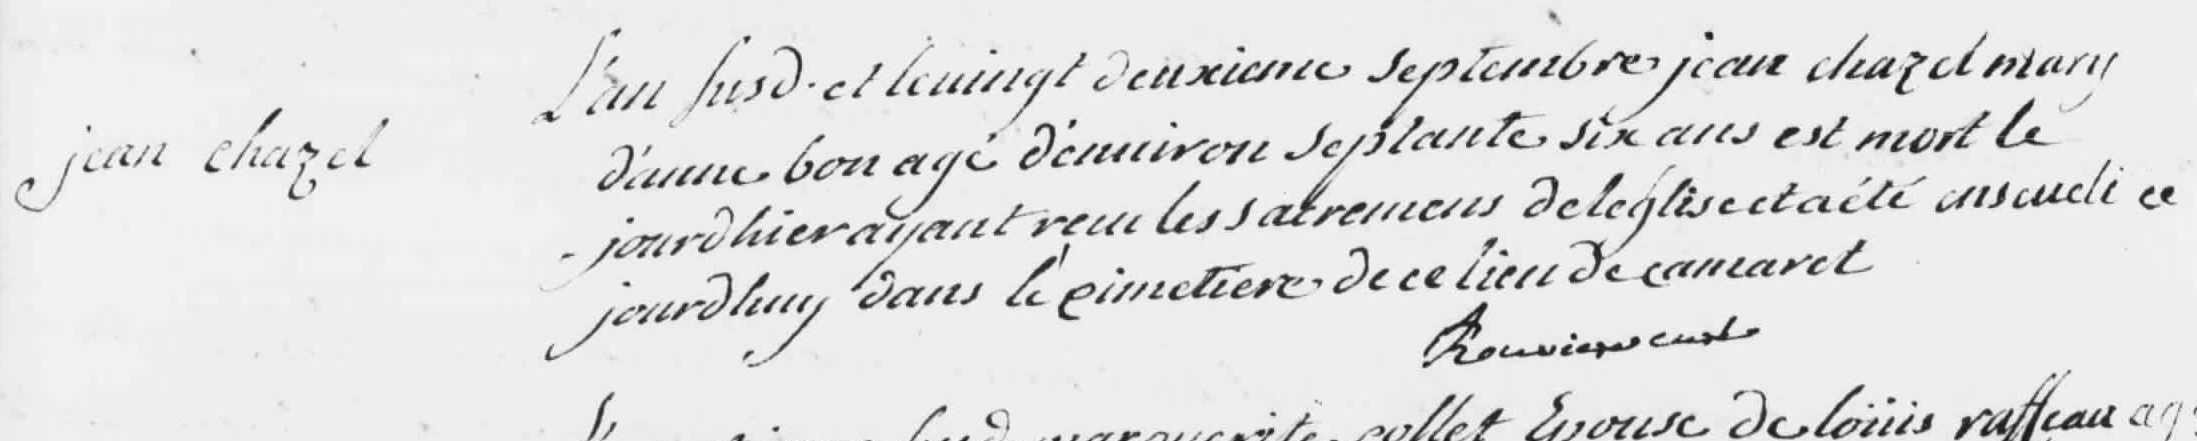 jean chazel
L'an susd. et le uingt deuxieme septembre jean chazel mary
d'anne bon agé d'enuiron septante six ans est mort le
jourdhier ayant receu les sacremens de leglise et a été enseueli ce
jourdhuy dans le cimetiere de ce lieu de camaret
Rouviere curé
marguerite collet Epouse de loüis raffeau ag